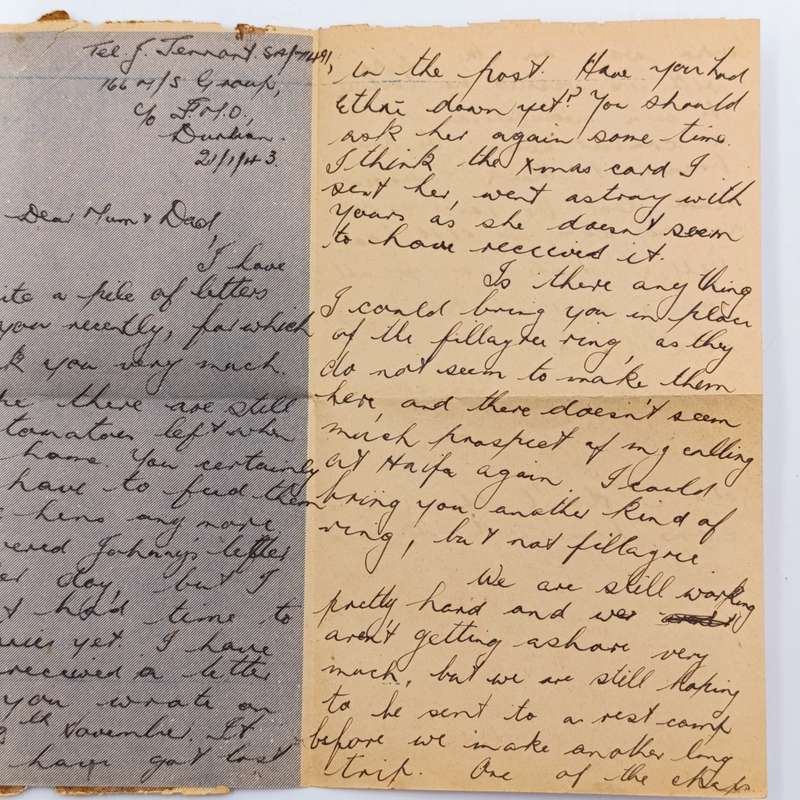 Tel. J. Tennant. SA/71491,
166 M/S Group,
c/o F.M.O,
Durban.
21/1/43.
Dear Mum & Dad,
I have
ite a pile of letters
you recently, for which
k you very much.
he there are still
tomatoes left when
home. You certainly
have to feed them
hens any more
ered Johnny's letter
er day, but I
t had time to
yet. I have
received a letter
you wrote on
th November. It
have got lost
in the post. Have you had
Ethne down yet? You should
ask her again some time.
I think the Xmas card I
sent her, went astray with
yours as she doesn't seem
to have received it.
Is there anything
I could bring you in place
of the fillagree ring, as they
do not seem to make them
here, and there doesn't seem
much prospect of my calling
at Haifa again. I could
bring you another kind of
ring, but not fillagree.
We are still working
pretty hard and we
aren't getting ashore very
much, but we are still hoping
to be sent to a rest camp
before we make another long
trip. One of the chaps